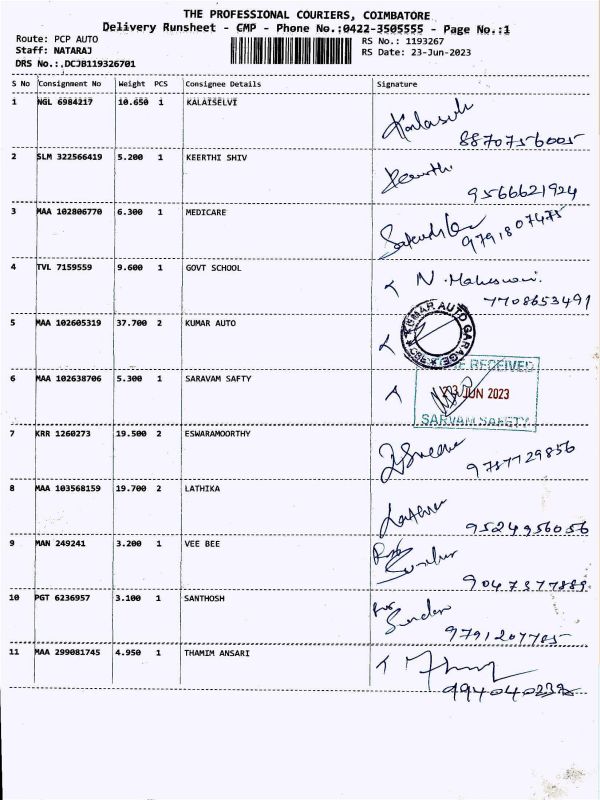 THE PROFESSIONAL COURIERS, COIMBATORE
Delivery Runsheet - CMP - Phone No.:0422-3505555 - Page No.:1
Route: PCP AUTO RS No.: 1193267
Staff: NATARAJ RS Date: 23-Jun-2023
DRS No.:.DCJB119326701
S No Consignment No Weight PCS Consignee Details Signature
1 NGL 6984217 10.650 1 KALAISELVI
8870756005
2 SLM 322566419 5.200 1 KEERTHI SHIV Keerthi
9566621924
3 MAA 102806770 6.300 1 MEDICARE
9791807475
4 TVL 7159559 9.600 1 GOVT SCHOOL N. Maheswari.
7708653491
5 MAA 102605319 37.700 2 KUMAR AUTO
KUMAR AUTO GARAGE
6 MAA 102638706 5.300 1 SARAVAM SAFTY
RECEIVED
23 JUN 2023
SARVAM SAFETY
7 KRR 1260273 19.500 2 ESWARAMOORTHY
9787729856
8 MAA 103568159 19.700 2 LATHIKA
9524956056
9 MAN 249241 3.200 1 VEE BEE
9047377889
10 PGT 6236957 3.100 1 SANTHOSH
9791207705
11 MAA 299081745 4.950 1 THAMIM ANSARI